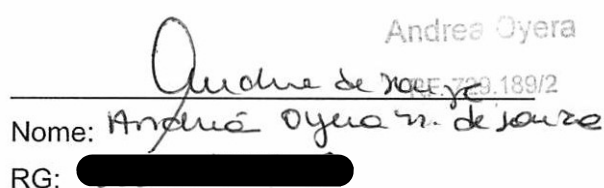 Andrea Oyera
Andrea de Souza RF. 729.189/2
Nome: Andréa Oyera M. de Souza
RG: